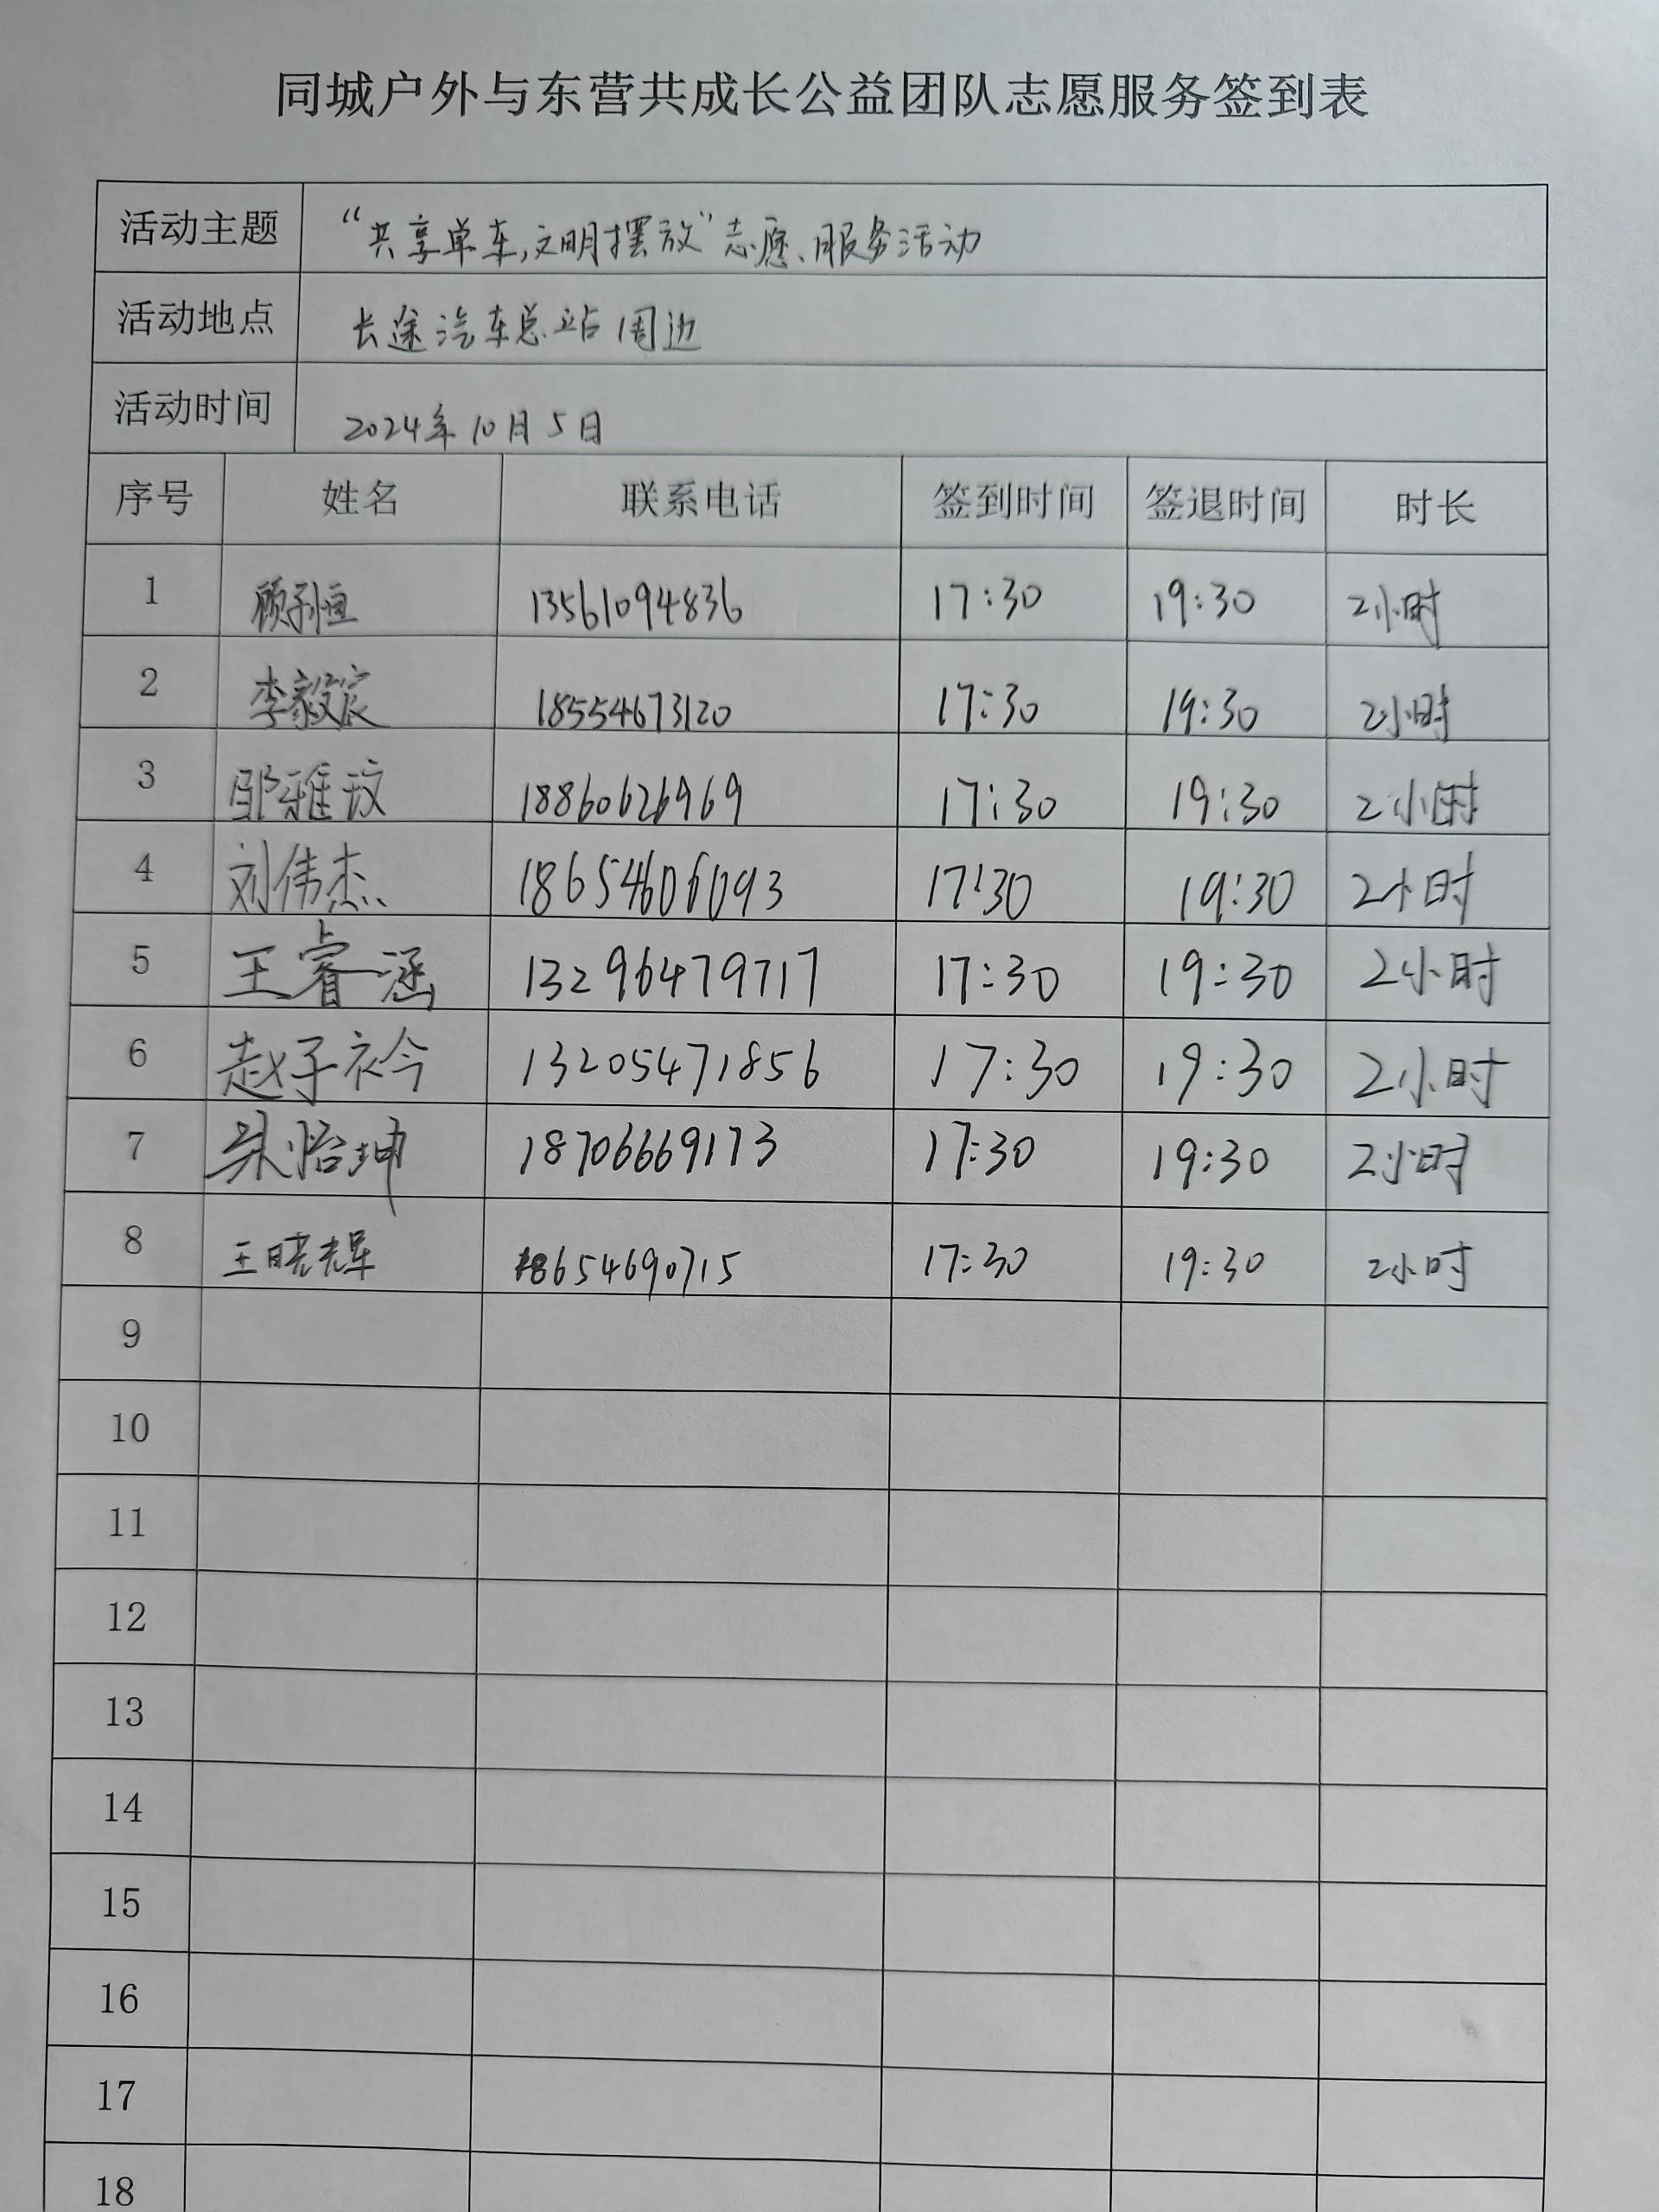 同城户外与东营共成长公益团队志愿服务签到表
活动主题 “共享单车,文明摆放”志愿服务活动
活动地点 长途汽车总站周边
活动时间 2024年10月5日
序号 姓名 联系电话 签到时间 签退时间 时长
1 顾孙恒 13561094836 17:30 19:30 2小时
2 李毅宸 18554673120 17:30 19:30 2小时
3 邬雅玟 18860626969 17:30 19:30 2小时
4 刘伟杰 18654606093 17:30 19:30 2小时
5 王睿涵 13296479717 17:30 19:30 2小时
6 赵子衿 13205471856 17:30 19:30 2小时
7 怡坤 18706669173 17:30 19:30 2小时
8 王晓辉 18654690715 17:30 19:30 2小时
9
10
11
12
13
14
15
16
17
18